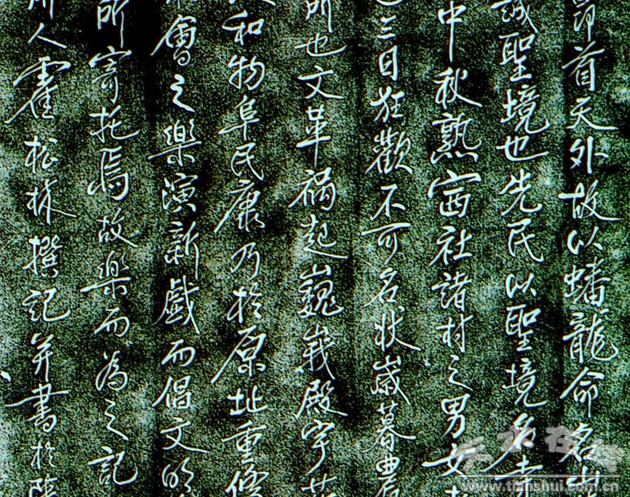 昂首天外故以蟠龍命名
誠聖境也先民以聖境
中秋熟賽社諸村之男女
三日狂歡不可名狀歲暮
所也文革禍起巍峩殿宇
和物阜民康乃於原址重修
會之樂演新戲而倡文明
所寄托焉故樂而為之記
人霍松林撰記并書於
天水在线
www.tianshui.com.cn